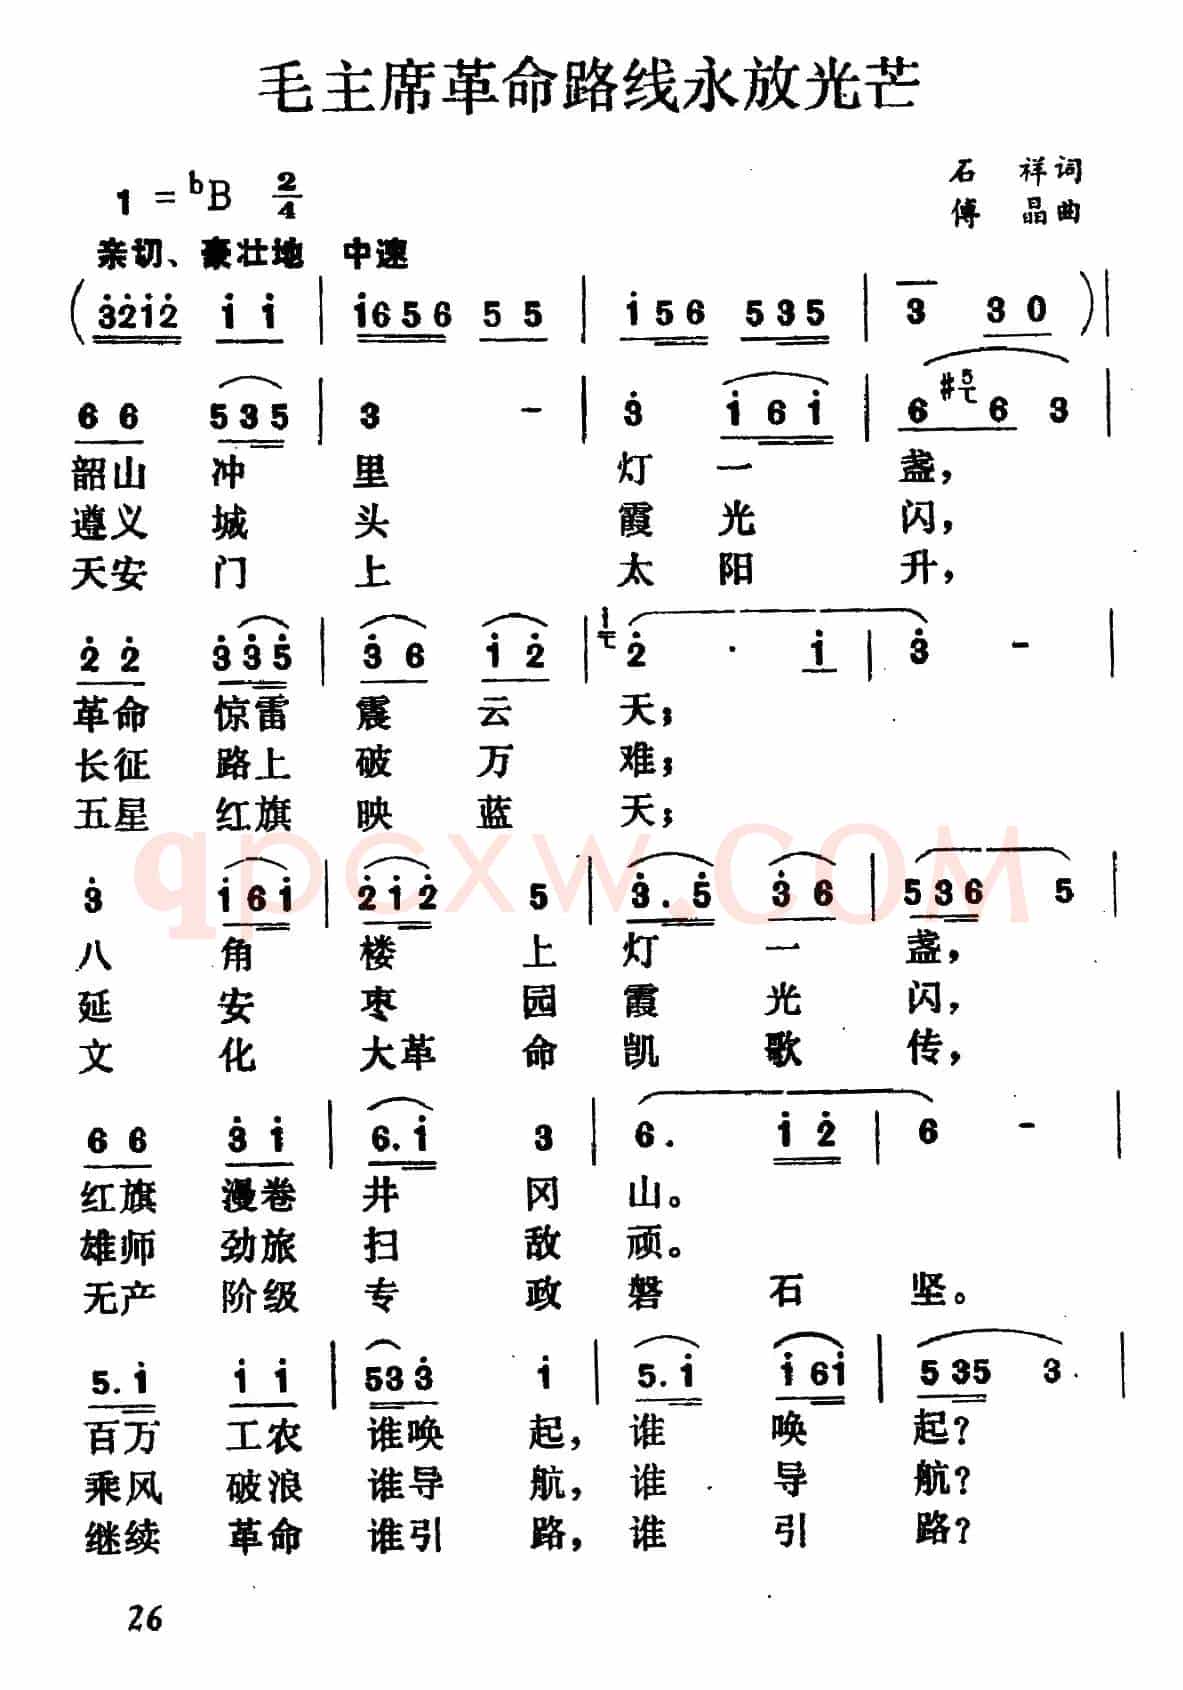 毛主席革命路线永放光芒
石 祥词
1 = ᵇB 2/4
傅 晶曲
亲切、豪壮地 中速
(3̇2̇1̇2̇ 1̇ 1̇ | 1̇656 5 5 | 1̇56 535 | 3 3 0 )|
6 6 535 | 3 - | 3̇ 1̇ 6 1̇ | 6 #5 6 3 |
韶山 冲 里 灯 一 盏，
遵义 城 头 霞 光 闪，
天安 门 上 太 阳 升，
2̇ 2̇ 3̇3̇5̇ | 3̇ 6 1̇ 2̇ | 1̇ 2̇ · 1̇ | 3̇ - |
革命 惊雷 震 云 天；
长征 路上 破 万 难；
五星 红旗 映 蓝 天；
3̇ 1̇ 6 1̇ | 2̇ 1̇ 2̇ 5 | 3̇. 5̇ 3̇ 6 | 536 5 |
八 角 楼 上 灯 一 盏，
延 安 枣 园 霞 光 闪，
文 化 大革 命 凯 歌 传，
6 6 3̇ 1̇ | 6. 1̇ 3 | 6. 1̇ 2̇ | 6 - |
红旗 漫卷 井 冈 山。
雄师 劲旅 扫 敌 顽。
无产 阶级 专 政 磐 石 坚。
5. 1̇ 1̇ 1̇ | 533̇ 1̇ | 5. 1̇ 1̇61̇ | 535 3 |
百万 工农 谁唤 起，谁 唤 起？
乘风 破浪 谁导 航，谁 导 航？
继续 革命 谁引 路，谁 引 路？
26
qpcxw.COM